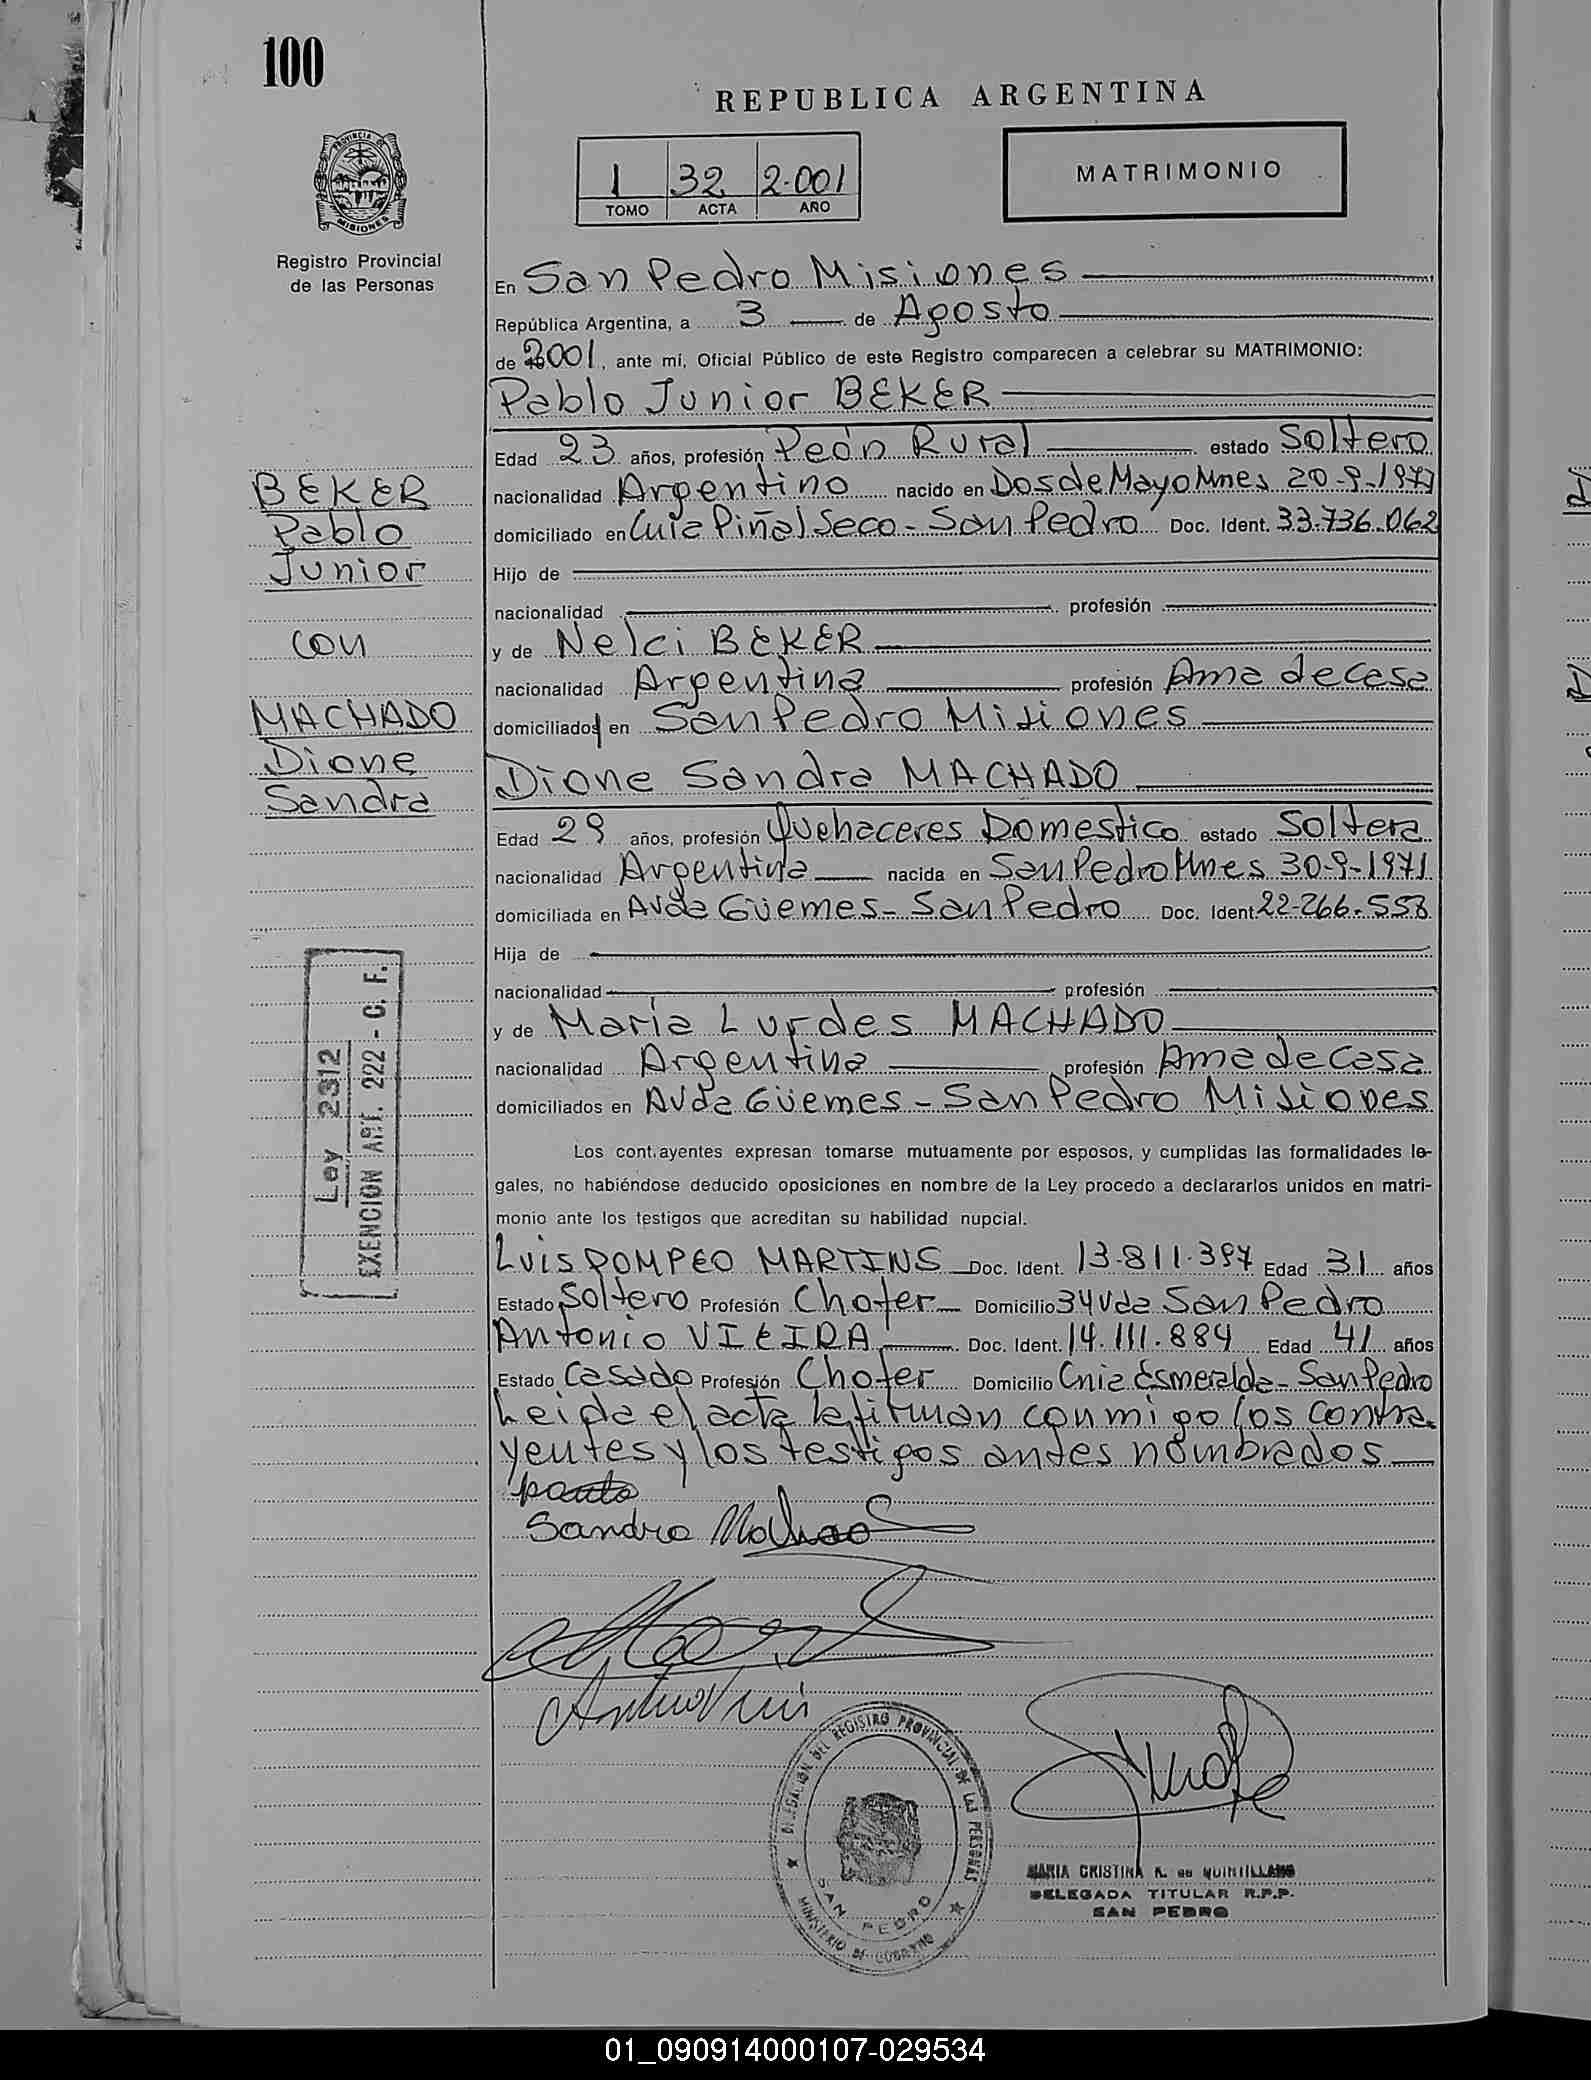 100
REPUBLICA ARGENTINA
PROVINCIA DE
MISIONES
1 32 2.001
TOMO ACTA AÑO
MATRIMONIO
Registro Provincial
de las Personas
En San Pedro Misiones
República Argentina, a 3 de Agosto
de 2001, ante mí, Oficial Público de este Registro comparecen a celebrar su MATRIMONIO:
Pablo Junior BEKER
Edad 23 años, profesión Peón Rural estado Soltero
nacionalidad Argentino nacido en Dos de Mayo Mnes 20-9-1977
domiciliado en Piñal Seco - San Pedro Doc. Ident. 33.736.062
Hijo de
nacionalidad profesión
y de Nelci BEKER
nacionalidad Argentina profesión Ama de Casa
domiciliados en San Pedro Misiones
BEKER
Pablo
Junior
con
MACHADO
Dione
Sandra
Dione Sandra MACHADO
Edad 29 años, profesión Quehaceres Domestico estado Soltera
nacionalidad Argentina nacida en San Pedro Mnes 30-9-1971
domiciliada en Avda Güemes - San Pedro Doc. Ident 22-266.558
Hija de
nacionalidad profesión
y de Maria Lurdes MACHADO
nacionalidad Argentina profesión Ama de Casa
domiciliados en Avda Güemes - San Pedro Misiones
Ley 2312
EXENCION ART. 222 - C. F.
Los cont.ayentes expresan tomarse mutuamente por esposos, y cumplidas las formalidades le-
gales, no habiéndose deducido oposiciones en nombre de la Ley procedo a declararlos unidos en matri-
monio ante los testigos que acreditan su habilidad nupcial.
LUIS POMPEO MARTINS Doc. Ident. 13.811.397 Edad 31 años
Estado Soltero Profesión Chofer Domicilio San Pedro
Antonio VIEIRA Doc. Ident. 14.111.884 Edad 41 años
Estado Casado Profesión Chofer Domicilio Cnia Esmeralda - San Pedro
Leida el acta la firman conmigo los contra
yentes y los testigos antes nombrados
Sandra Machado
DELEGACIÓN DEL REGISTRO PROVINCIAL DE LAS PERSONAS
SAN PEDRO
MINISTERIO DE GOBIERNO
MARIA CRISTINA K. de QUINTILLANO
DELEGADA TITULAR R.P.P.
SAN PEDRO
01_090914000107-029534